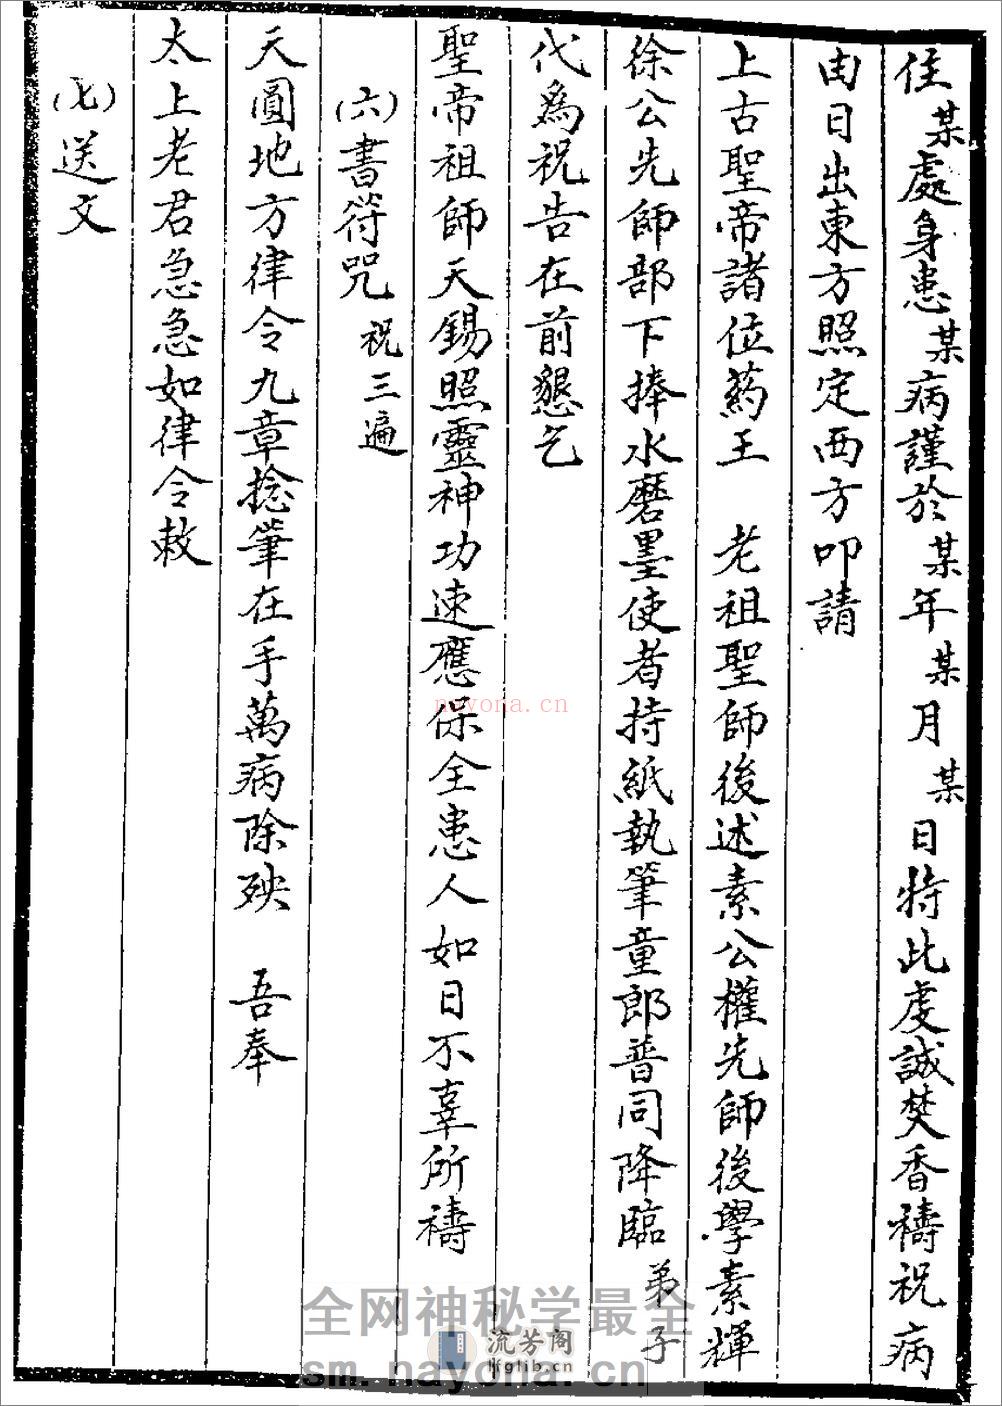 住某處身患某病謹於某年某月某日特此虔誠焚香禱祝病
由日出東方照定西方叩請
上古聖帝諸位葯王　老祖聖師後述素公權先師後學素輝
徐公先師部下捧水磨墨使者持紙執筆童郎普同降臨弟子
代為祝告在前懇乞
聖帝祖師天錫照靈神功速應保全患人如日不辜所禱
(六)書符咒 祝三遍
天圓地方律令九章捻筆在手萬病除殃　吾奉
太上老君急急如律令敕
(七)送文
nayona.cn
全网神秘学最全
流芳阁
lfglib.cn
sm.nayona.cn